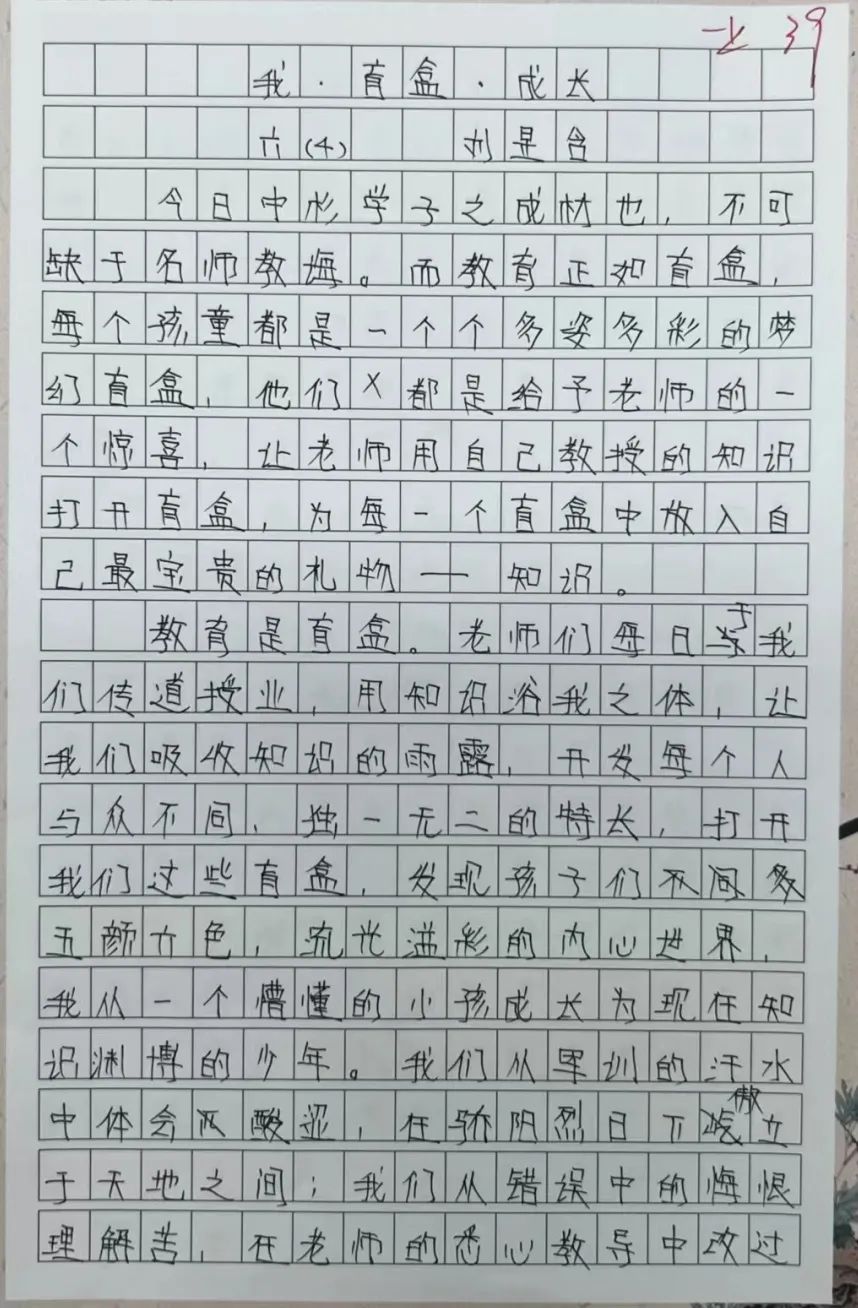 39
我·盲盒·成长
六(4) 刘昱含
今日中彬学子之成材也，不可
缺于名师教诲。而教育正如盲盒，
每个孩童都是一个个多姿多彩的梦
幻盲盒，他们都是给予老师的一
个惊喜，让老师用自己教授的知识
打开盲盒，为每一个盲盒中放入自
己最宝贵的礼物——知识。
教育是盲盒。老师们每日于我
们传道授业，用知识浴我之体，让
我们吸收知识的雨露，开发每个人
与众不同、独一无二的特长，打开
我们这些盲盒，发现孩子们不同
五颜六色，流光溢彩的内心世界，
我从一个懵懂的小孩成长为现在知
识渊博的少年。我们从军训的汗水
中体会酸涩，在骄阳烈日下傲立
于天地之间；我们从错误中的悔恨
理解苦，在老师的悉心教导中改过